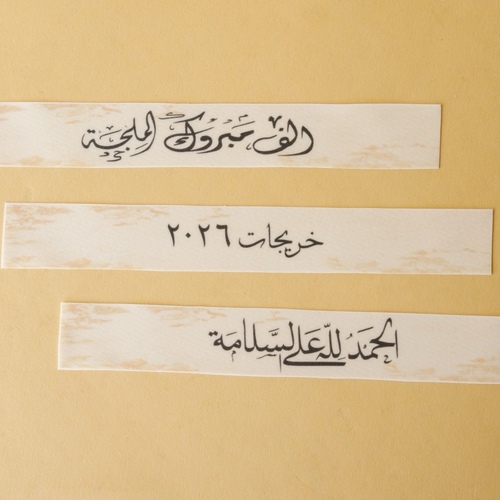 الف مبروك الملجة
خريجات ٢٠٢٦
الحمَدُ لِلّه عَلى السَّلامَة